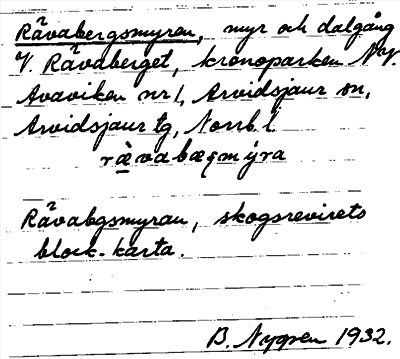 Råvabergsmyren, myr och dalgång
V. Råvaberget, kronoparken N.V.
Avaviken nr 1, Arvidsjaur sn,
Arvidsjaur tg, Norrb. l.
råvabægmýra
Råvabgsmyran, skogsrevirets
block-karta.
B. Nygren 1932.